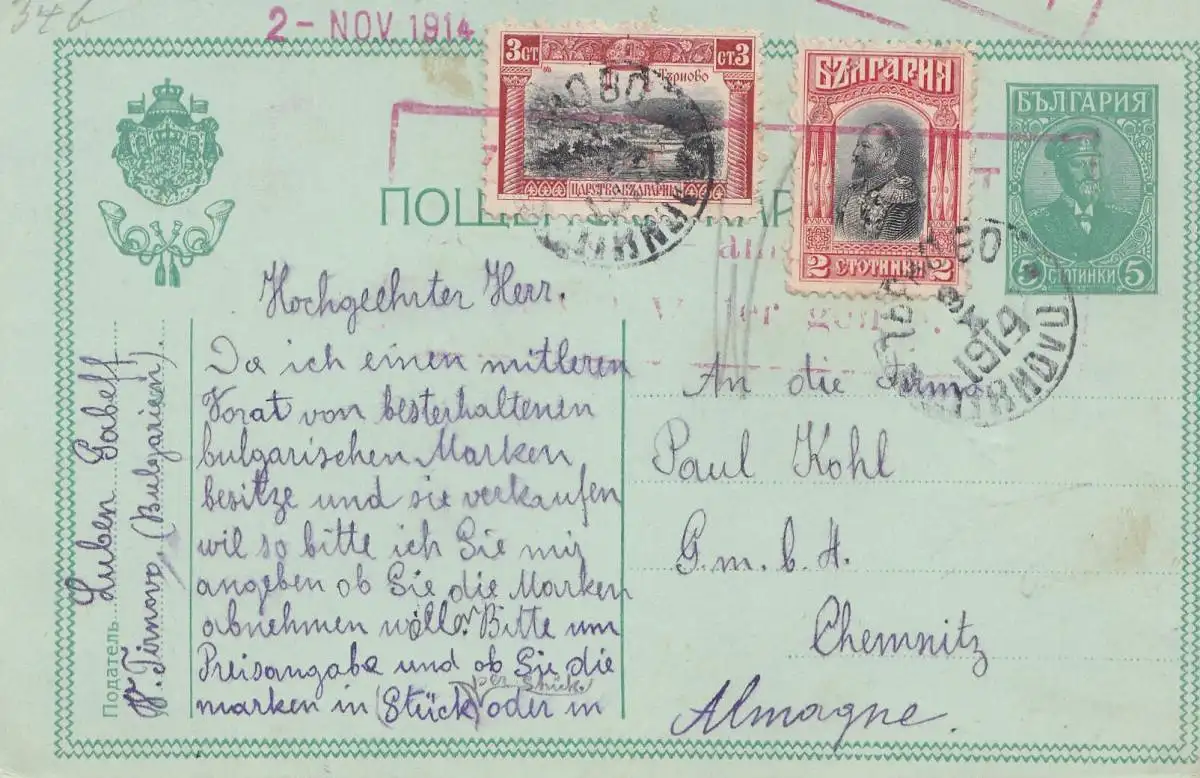 346
2 - NOV 1914
3 СТ.
СТ. 3
Търново
ЦАРСТВО БЪЛГАРИЯ
БЪЛГАРИЯ
2 СТОТИНКИ 2
БЪЛГАРИЯ
5 СТОТИНКИ 5
TIRNOVO
Hochgeehrter Herr.
Da ich einen mitleren
Vorat von besterhaltenen
bulgarischen Marken
besitze und sie verkaufen
wil so bitte ich Sie mir
angeben ob Sie die Marken
abnehmen wollen Bitte um
Preisangabe und ob Sie die
per Stück.
marken in (Stück) oder in
An die Firma
Paul Kohl
G.m.b.H.
Chemnitz
Almagne.
Податель
Luben Gabeff
W. Tirnovo, (Bulgarien).